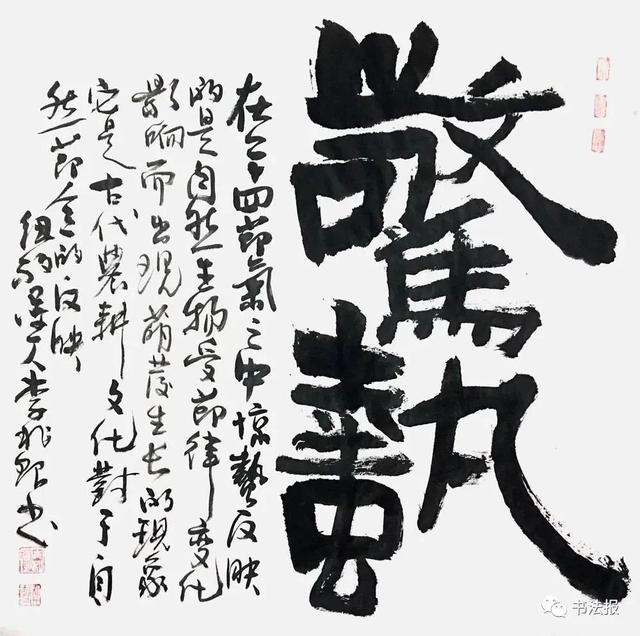 驚蟄
在二十四節氣之中惊蟄反映
的是自然生物受節律變化
影响而出現萌發生长的現象
它是古代農耕文化對于自
然節令的反映
人李书
书法报